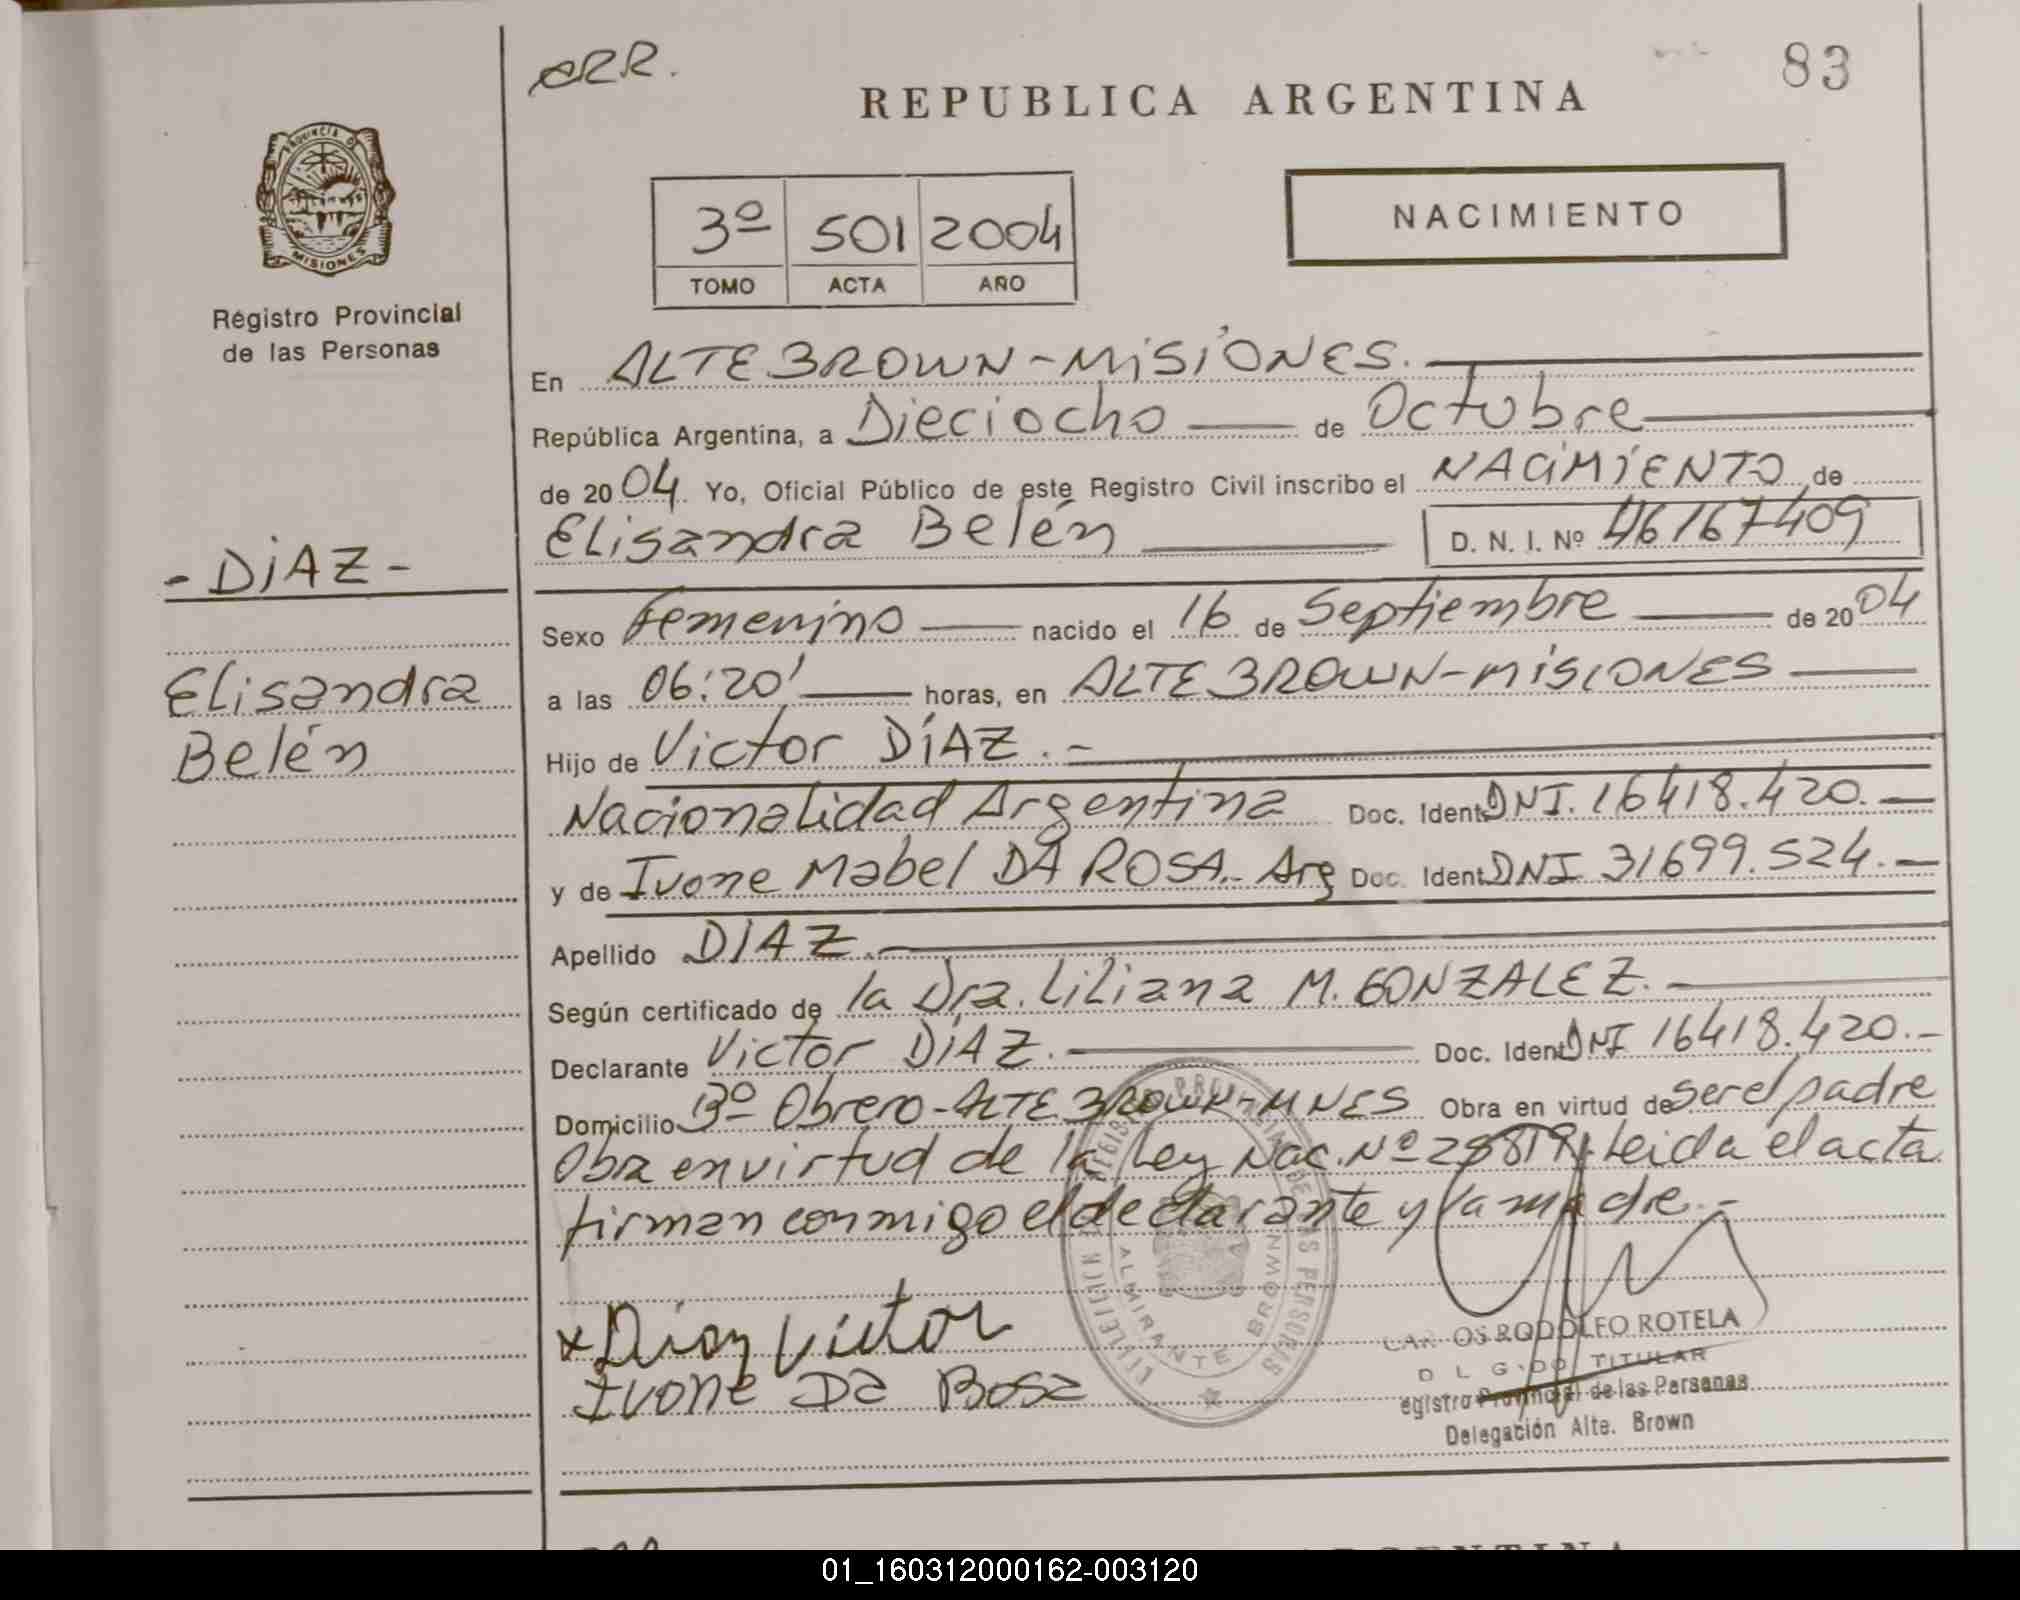 CRR.
REPUBLICA ARGENTINA
83
PROVINCIA DE
MISIONES
Registro Provincial
de las Personas
3º 501 2004
TOMO ACTA AÑO
NACIMIENTO
En ALTE BROWN-MISIONES.
República Argentina, a Dieciocho de Octubre
de 2004. Yo, Oficial Público de este Registro Civil inscribo el NACIMIENTO de
Elisandra Belén D. N. I. Nº 46167409
- DIAZ -
Elisandra
Belén
Sexo Femenino nacido el 16 de Septiembre de 2004
a las 06:20' horas, en ALTE BROWN-MISIONES
Hijo de Victor DÍAZ.-
Nacionalidad Argentina Doc. Ident. DNI. 16418.420.-
y de Ivone Mabel DA ROSA.- Arg Doc. Ident. DNI 31699.524.-
Apellido DIAZ.-
Según certificado de la Dra. Liliana M. GONZALEZ.-
Declarante Victor DÍAZ. Doc. Ident. DNI 16418.420.-
Domicilio Bº Obrero-ALTE BROWN-MNES Obra en virtud de ser el padre
Obra en virtud de la Ley Nac. Nº Leida el acta
firman conmigo el declarante y la madre.-
x Diaz Victor
Ivone Da Rosa
ALMIRANTE BROWN
CARLOS RODOLFO ROTELA
TITULAR
egistro Provincial de las Personas
Delegación Alte. Brown
01_160312000162-003120